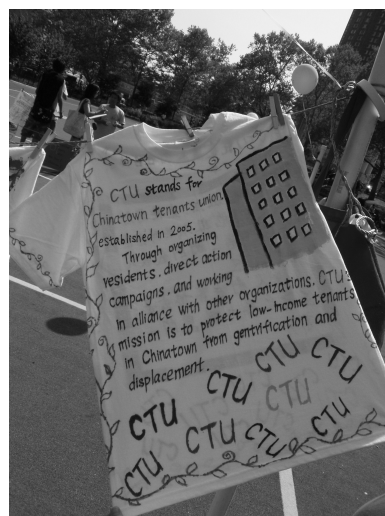 CTU stands for
Chinatown tenants union
established in 2005.
Through organizing
residents. direct action
campaigns. and working
in alliance with other organizations. CTU's
mission is to protect low-income tenants
in Chinatown from gentrification and
displacement.
CTU CTU
CTU CTU
CTU CTU CTU
CTU CTU